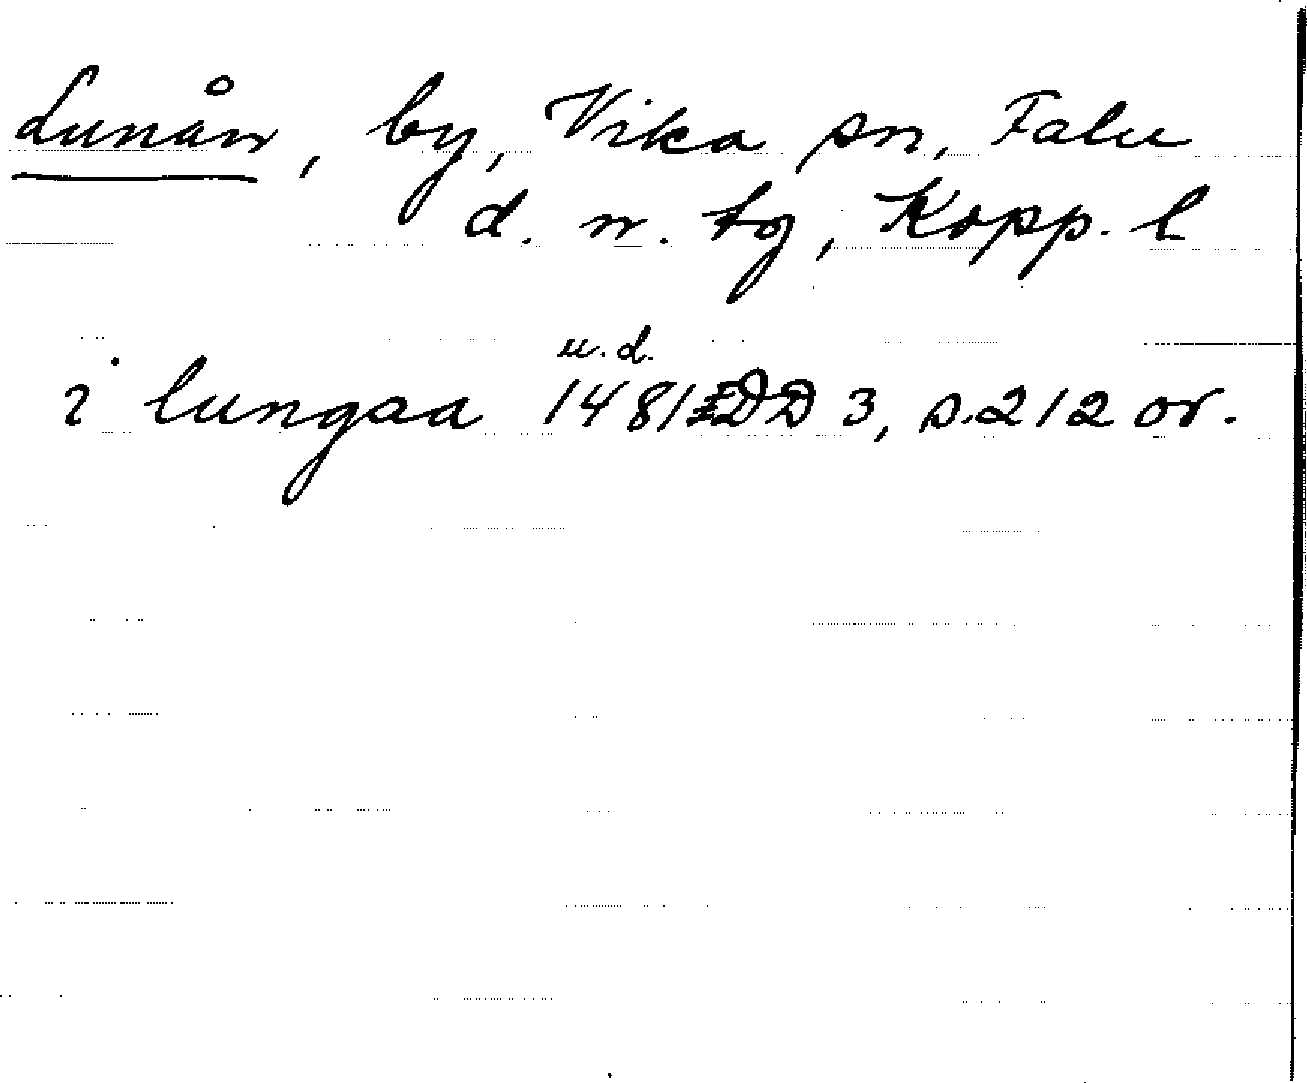 Lunån, by, Vika sn, Falu
d. n. tg, Kopp. l
u.d.
i lungaa 1481 DD 3, s. 212 or.